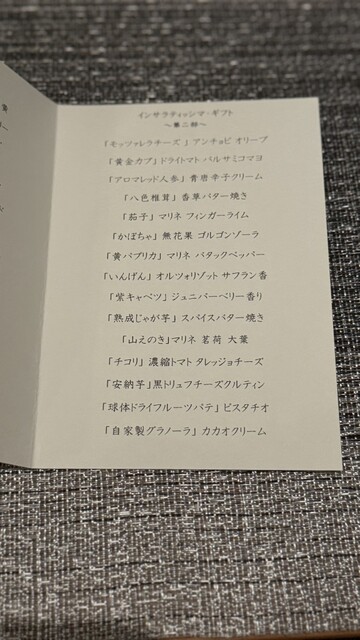 インサラティッシマ・ギフト
～第二部～
「モッツァレラチーズ」アンチョビ オリーブ
「黄金カブ」ドライトマト バルサミコマヨ
「アロマレッド人参」青唐辛子クリーム
「八色椎茸」香草バター焼き
「茄子」マリネ フィンガーライム
「かぼちゃ」無花果 ゴルゴンゾーラ
「黄パプリカ」マリネ バタックペッパー
「いんげん」オルツォリゾット サフラン香
「紫キャベツ」ジュニパーベリー香り
「熟成じゃが芋」スパイスバター焼き
「山えのき」マリネ 茗荷 大葉
「チコリ」濃縮トマト タレッジョチーズ
「安納芋」黒トリュフチーズクルティン
「球体ドライフルーツパテ」ピスタチオ
「自家製グラノーラ」カカオクリーム